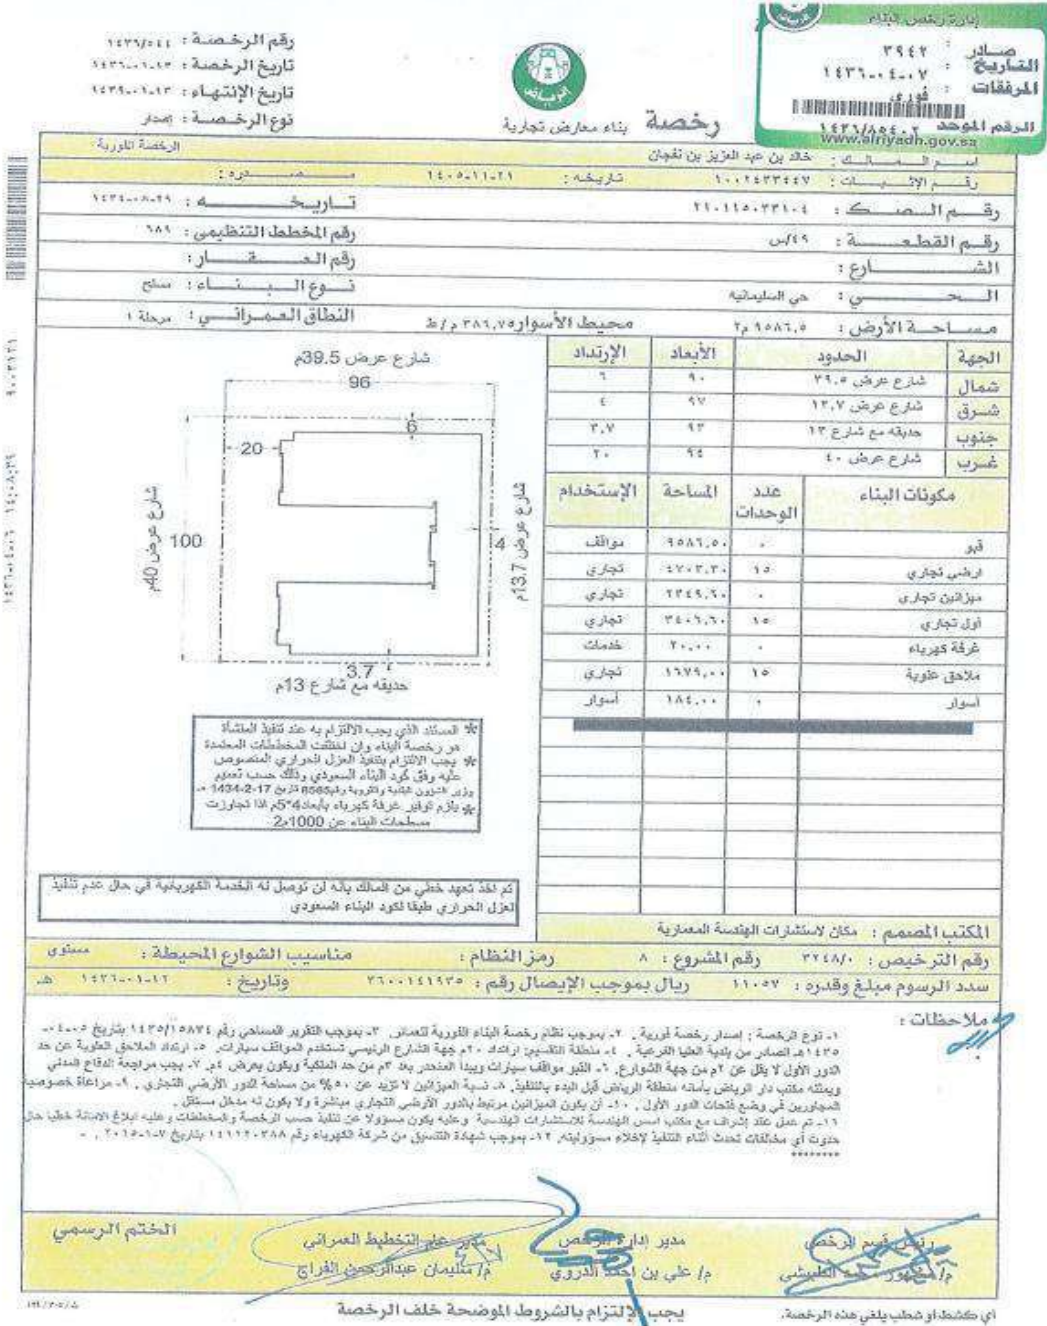 إدارة رخص البناء
صادر : ٣٩٤٢
التاريخ : ١٤٣٦-٠٤-٠٧
المرفقات : فوري
الرقم الموحد
www.alriyadh.gov.sa
رقم الرخصة : ١٤٣٦/٥٤٤
تاريخ الرخصة : ١٤٣٦-٠١-١٣
تاريخ الإنتهاء : ١٤٣٩-٠١-١٣
نوع الرخصة : إصدار
الرياض
رخصة بناء معارض تجارية
اسم المالك : خالد بن عبد العزيز بن نفجان
الرخصة الفورية
رقم الإثبات : ١٠٠٢٤٣٣٤٤٧ تاريخه : ١٤٠٥-١١-٢١ مصدره :
رقم الصك : ٢١٠١١٥٠٣٣١٠٤ تاريخه : ١٤٣٤-٠٨-٢٩
رقم القطعة : ٤٩/س رقم المخطط التنظيمي : ٦٨٩
الشارع : رقم العقار :
الحي : حي السليمانيه نوع البناء : مسلح
مساحة الأرض : ٩٥٨٦,٥ م٢ محيط الأسوار ٣٨٦,٧٥ م/ط النطاق العمراني : مرحلة ١
الجهة الحدود الأبعاد الإرتداد
شمال شارع عرض ٣٩.٥ ٩٠ ٦
شرق شارع عرض ١٣,٧ ٩٧ ٤
جنوب حديقه مع شارع ١٣ ٩٣ ٣,٧
غرب شارع عرض ٤٠ ٩٤ ٢٠
مكونات البناء عدد الوحدات المساحة الإستخدام
قبو ٠ ٩٥٨٦,٥٠ مواقف
ارضي تجاري ١٥ ٤٧٠٣,٣٠ تجاري
ميزانين تجاري ٠ ٢٣٤٩,٦٠ تجاري
أول تجاري ١٥ ٣٤٠٦,٦٠ تجاري
غرفة كهرباء ٠ ٢٠,٠٠ خدمات
ملاحق علوية ١٥ ١٦٧٩,٠٠ تجاري
أسوار ٠ ١٨٤,٠٠ أسوار
شارع عرض 39.5م
96
6
20
شارع عرض 40م
100
4
شارع عرض 13.7م
3.7
حديقه مع شارع 13م
* المستند الذي يجب الالتزام به عند تنفيذ المنشأة
هو رخصة البناء وان اختلفت المخططات المعتمدة
* يجب الالتزام بتنفيذ العزل الحراري المنصوص
عليه وفق كود البناء السعودي وذلك حسب تعميم
وزير الشؤون البلدية والقروية رقم8585 تاريخ 17-2-1434 هـ
* يلزم توفير غرفة كهرباء بأبعاد4*5م اذا تجاوزت
مسطحات البناء عن 1000م2
تم اخذ تعهد خطي من المالك بأنه لن توصل له الخدمة الكهربائية في حال عدم تنفيذ
العزل الحراري طبقا لكود البناء السعودي
المكتب المصمم : مكان لاستشارات الهندسة المعمارية
رقم الترخيص : ٣٢٤٨/٠ رقم المشروع : ٨ رمز النظام : مناسيب الشوارع المحيطة : مستوى
سدد الرسوم مبلغ وقدره : ١١٠٥٧ ريال بموجب الإيصال رقم : ٣٦٠٠١٤١٩٣٥ وتاريخ : ١٤٣٦-٠١-١٢ هـ
ملاحظات :
١- نوع الرخصة : إصدار رخصة فورية . ٢- بموجب نظام رخصة البناء الفورية للعمائر. ٣- بموجب التقرير المساحي رقم ١٤٣٥/١٥٨٧٤ بتاريخ ٠٥-٠٤-
١٤٣٥هـ الصادر من بلدية العليا الفرعية . ٤- منطقة التقسيم: ارتداد ٢٠م جهة الشارع الرئيسي تستخدم المواقف سيارات. ٥- ارتداد الملاحق العلوية عن حد
الدور الأول لا يقل عن ٢م من جهة الشوارع. ٦- القبو مواقف سيارات ويبدأ المنحدر بعد ٣م من حد الملكية ويكون بعرض ٤م. ٧- يجب مراجعة الدفاع المدني
ويمثله مكتب دار الرياض بأمانه منطقة الرياض قبل البدء بالتنفيذ. ٨- نسبة الميزانين لا تزيد عن ٥٠% من مساحة الدور الأرضي التجاري . ٩- مراعاة خصوصية
المجاورين في وضع فتحات الدور الأول . ١٠- أن يكون الميزانين مرتبط بالدور الأرضي التجاري مباشرة ولا يكون له مدخل مستقل .
١١- تم عمل عقد إشراف مع مكتب اسس الهندسة للاستشارات الهندسية وعليه يكون مسؤولا عن تنفيذ حسب الرخصة والمخططات وعليه ابلاغ الامانة خطيا حال
حدوث أي مخالفات تحدث أثناء التنفيذ لإخلاء مسؤوليته. ١٢- بموجب شهادة التنسيق من شركة الكهرباء رقم ١٤١١٢٠٣٨٨ بتاريخ ٧-١-٢٠١٥ . -
********
رئيس قسم الرخص مدير إدارة الرخص مدير عام التخطيط العمراني الختم الرسمي
م/ علي بن احمد الدروي م/ سليمان عبدالرحمن الفراج
أي كشط او شطب يلغي هذه الرخصة. يجب الإلتزام بالشروط الموضحة خلف الرخصة